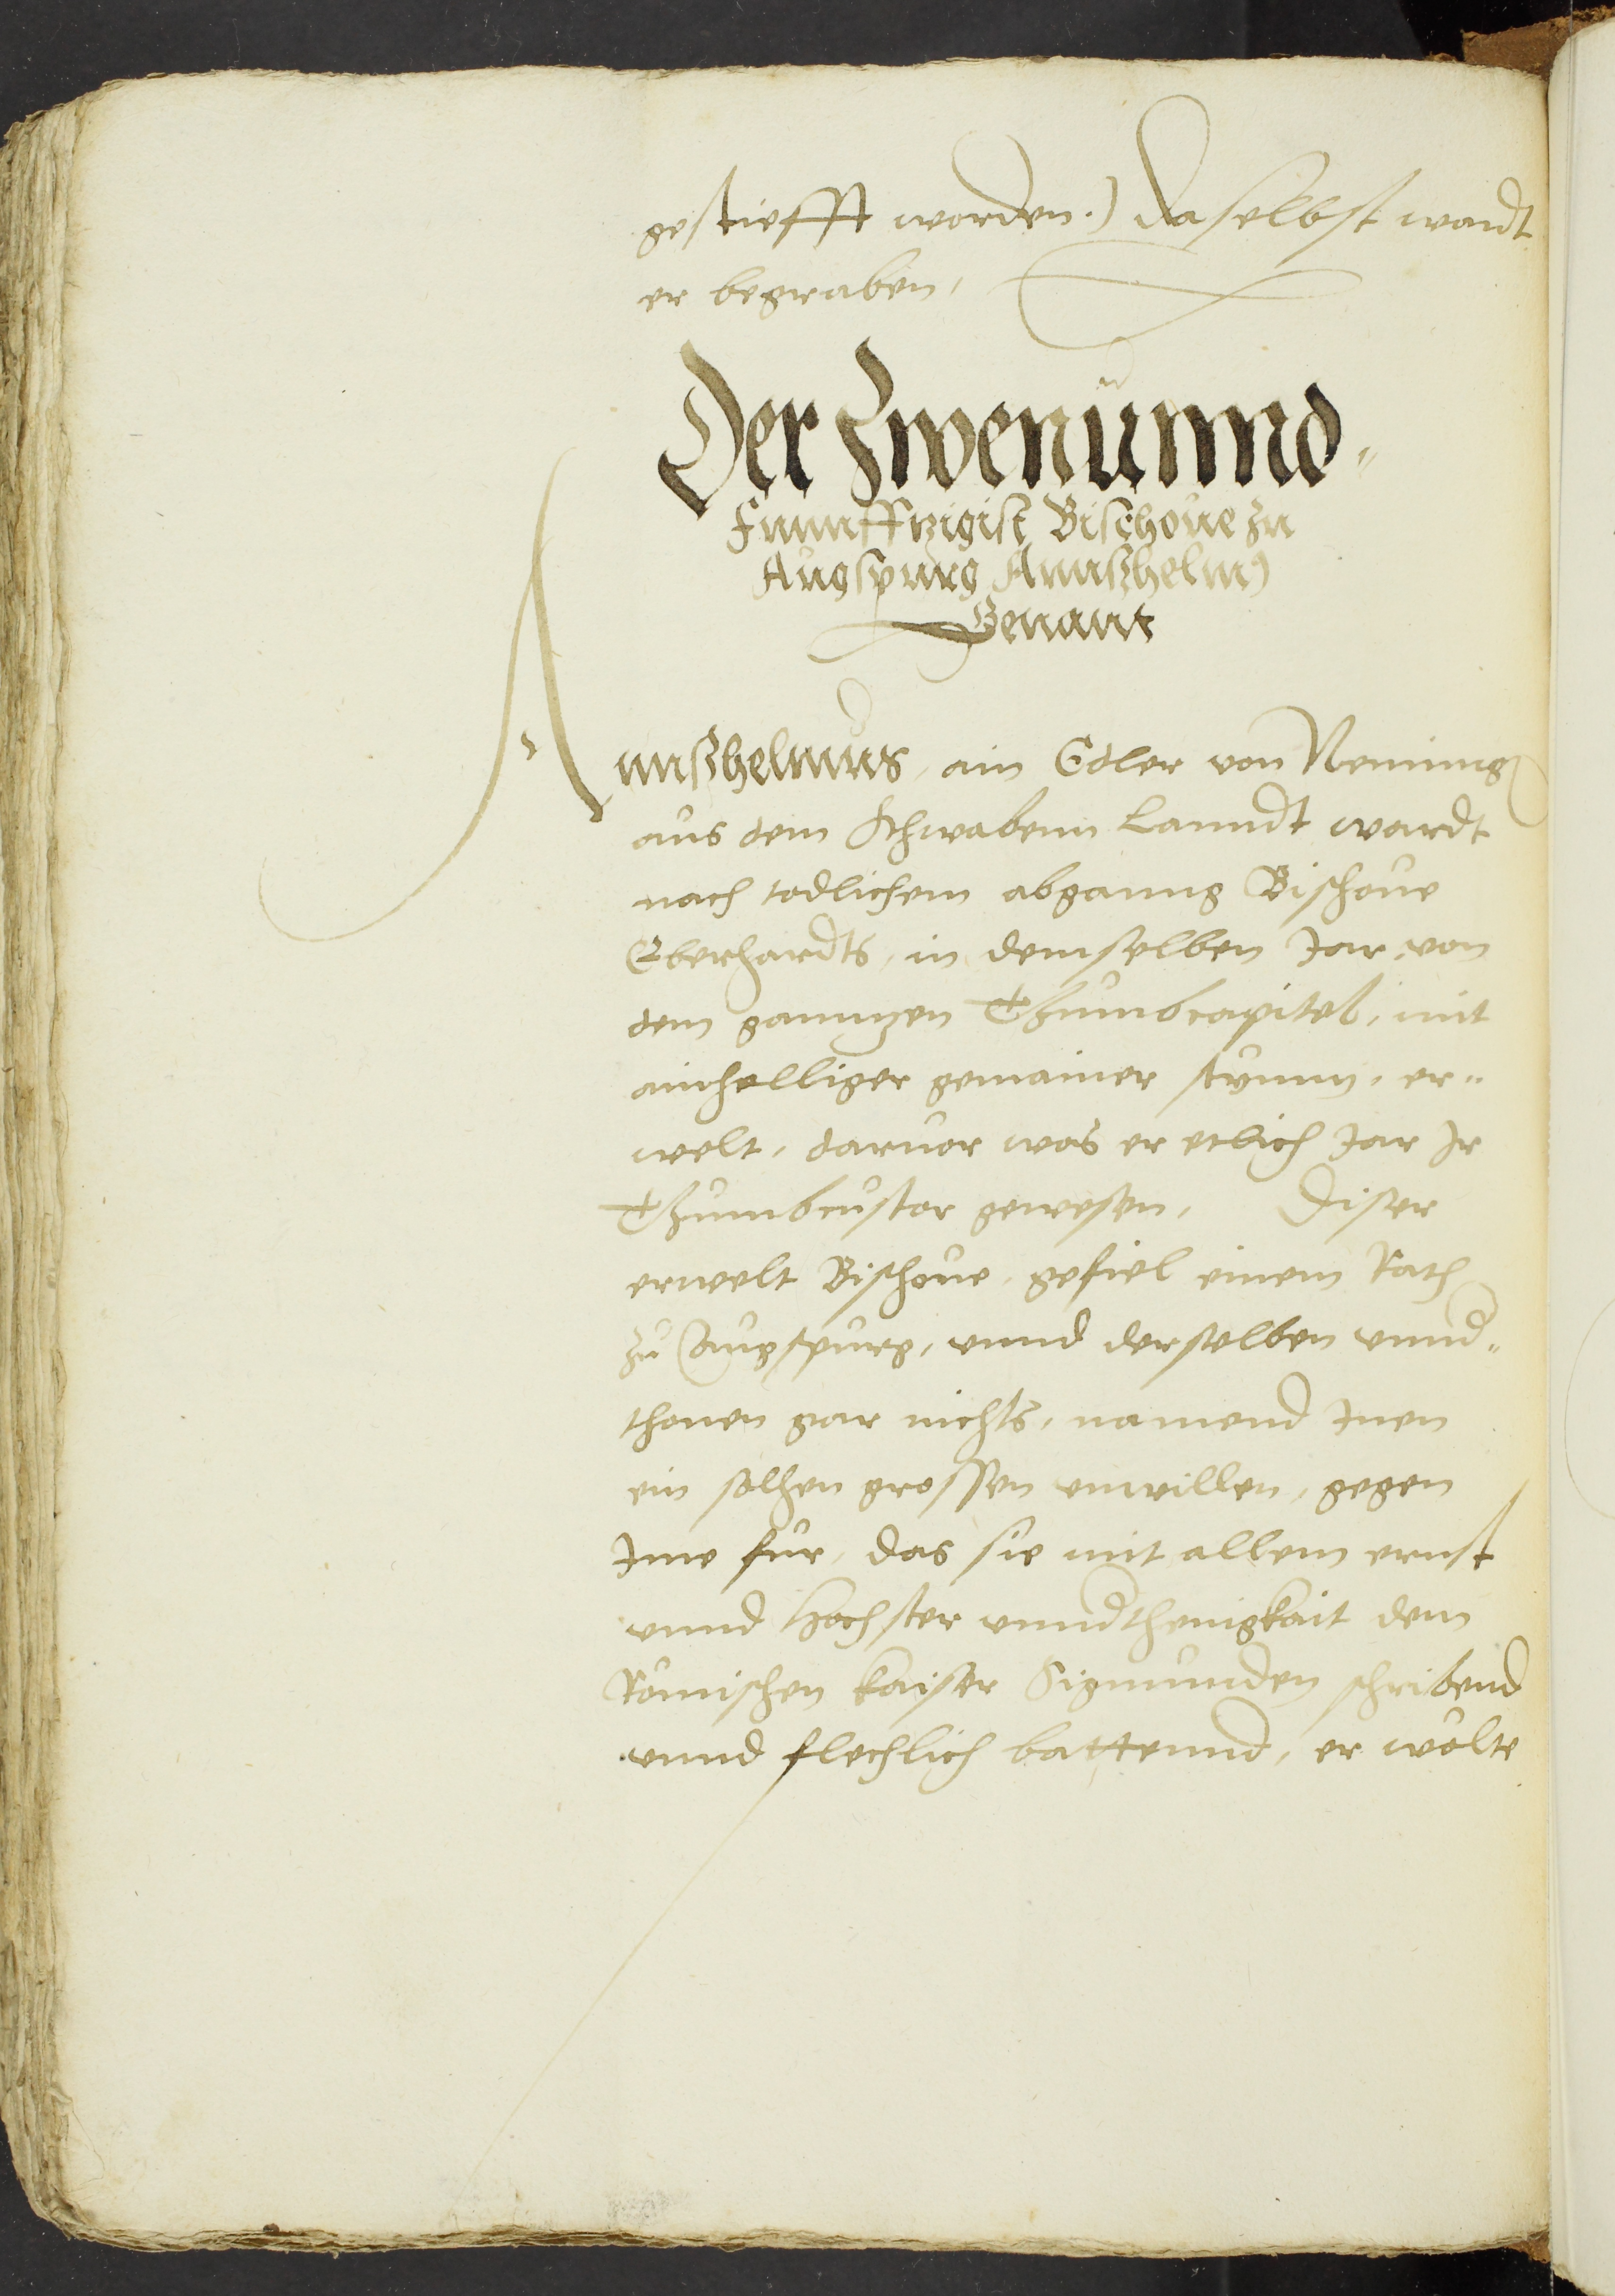 gestiefft worden.) Daselbst wardt
er begraben,
Der Zwenunnd=
Funnfftzigist Bischoue zu
Augspurg Annßhelm
Genant
Annßhelmus, ain Edler von Nenning
aus dem Schwabenn Lanndt wardt
nach todlichem abganng Bischoue
Eberhardts, in demselben Jar, von
dem ganntzen Thumbcapitel, mit
ainhelliger gemainer stymm, er=
welt, daruor was er etlich Jar Jr
Thumbcustor gewesen, Diser
erwelt Bischoue, gefiel einem Rath
zu Augspurg, vnnd derselben vnnd=
thonen gar nichts, namend Jnen
ein solhen grossen vnwillen, gegen
Jme fur, das sie mit allem ernst
vnnd Hochster vnndthenigkait dem
Römischen kaiser Sigmunden schribend
vnnd flechlich battennd, er wolte